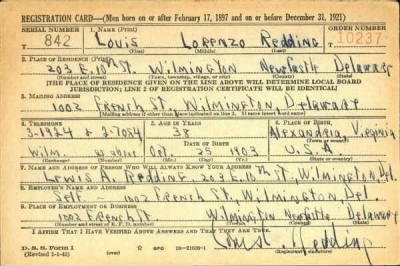 REGISTRATION CARD—(Men born on or after February 17, 1897 and on or before December 31, 1921)
SERIAL NUMBER 1. NAME (Print) ORDER NUMBER
U 842 Louis Lorenzo Redding 10237
(First) (Middle) (Last)
2. PLACE OF RESIDENCE (Print)
203 E. 10th St. Wilmington New Castle Delaware
(Number and street) (Town, township, village, or city) (County) (State)
[THE PLACE OF RESIDENCE GIVEN ON THE LINE ABOVE WILL DETERMINE LOCAL BOARD
JURISDICTION; LINE 2 OF REGISTRATION CERTIFICATE WILL BE IDENTICAL]
3. MAILING ADDRESS
1002 French St., Wilmington, Delaware
[Mailing address if other than place indicated on line 2. If same insert word same]
4. TELEPHONE 5. AGE IN YEARS 6. PLACE OF BIRTH
3-1924 & 2-7054 38 Alexandria, Virginia
DATE OF BIRTH (Town or county)
Wilm. Oct. 25 1903 U.S.A.
(Exchange) (Number) (Mo.) (Day) (Yr.) (State or country)
7. NAME AND ADDRESS OF PERSON WHO WILL ALWAYS KNOW YOUR ADDRESS
Lewis A. Redding 203 E. 10th St. Wilmington, Del.
8. EMPLOYER'S NAME AND ADDRESS
Self - 1002 French St., Wilmington, Del.
9. PLACE OF EMPLOYMENT OR BUSINESS
1002 French St. Wilmington New Castle Delaware
(Number and street or R. F. D. number) (Town) (County) (State)
I AFFIRM THAT I HAVE VERIFIED ABOVE ANSWERS AND THAT THEY ARE TRUE.
D. S. S. Form 1
(Revised 1-1-42) GPO 16—21630-1
Louis L. Redding